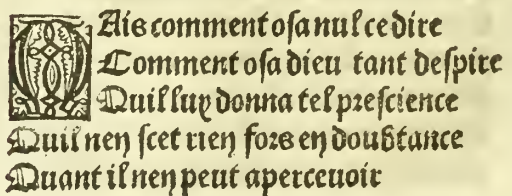 MAis comment osa nul ce dire
Comment osa dieu tant despire
Quil luy donna tel prescience
Quil nen scet rien fors en doubtance
Quant il nen peut apercevoir